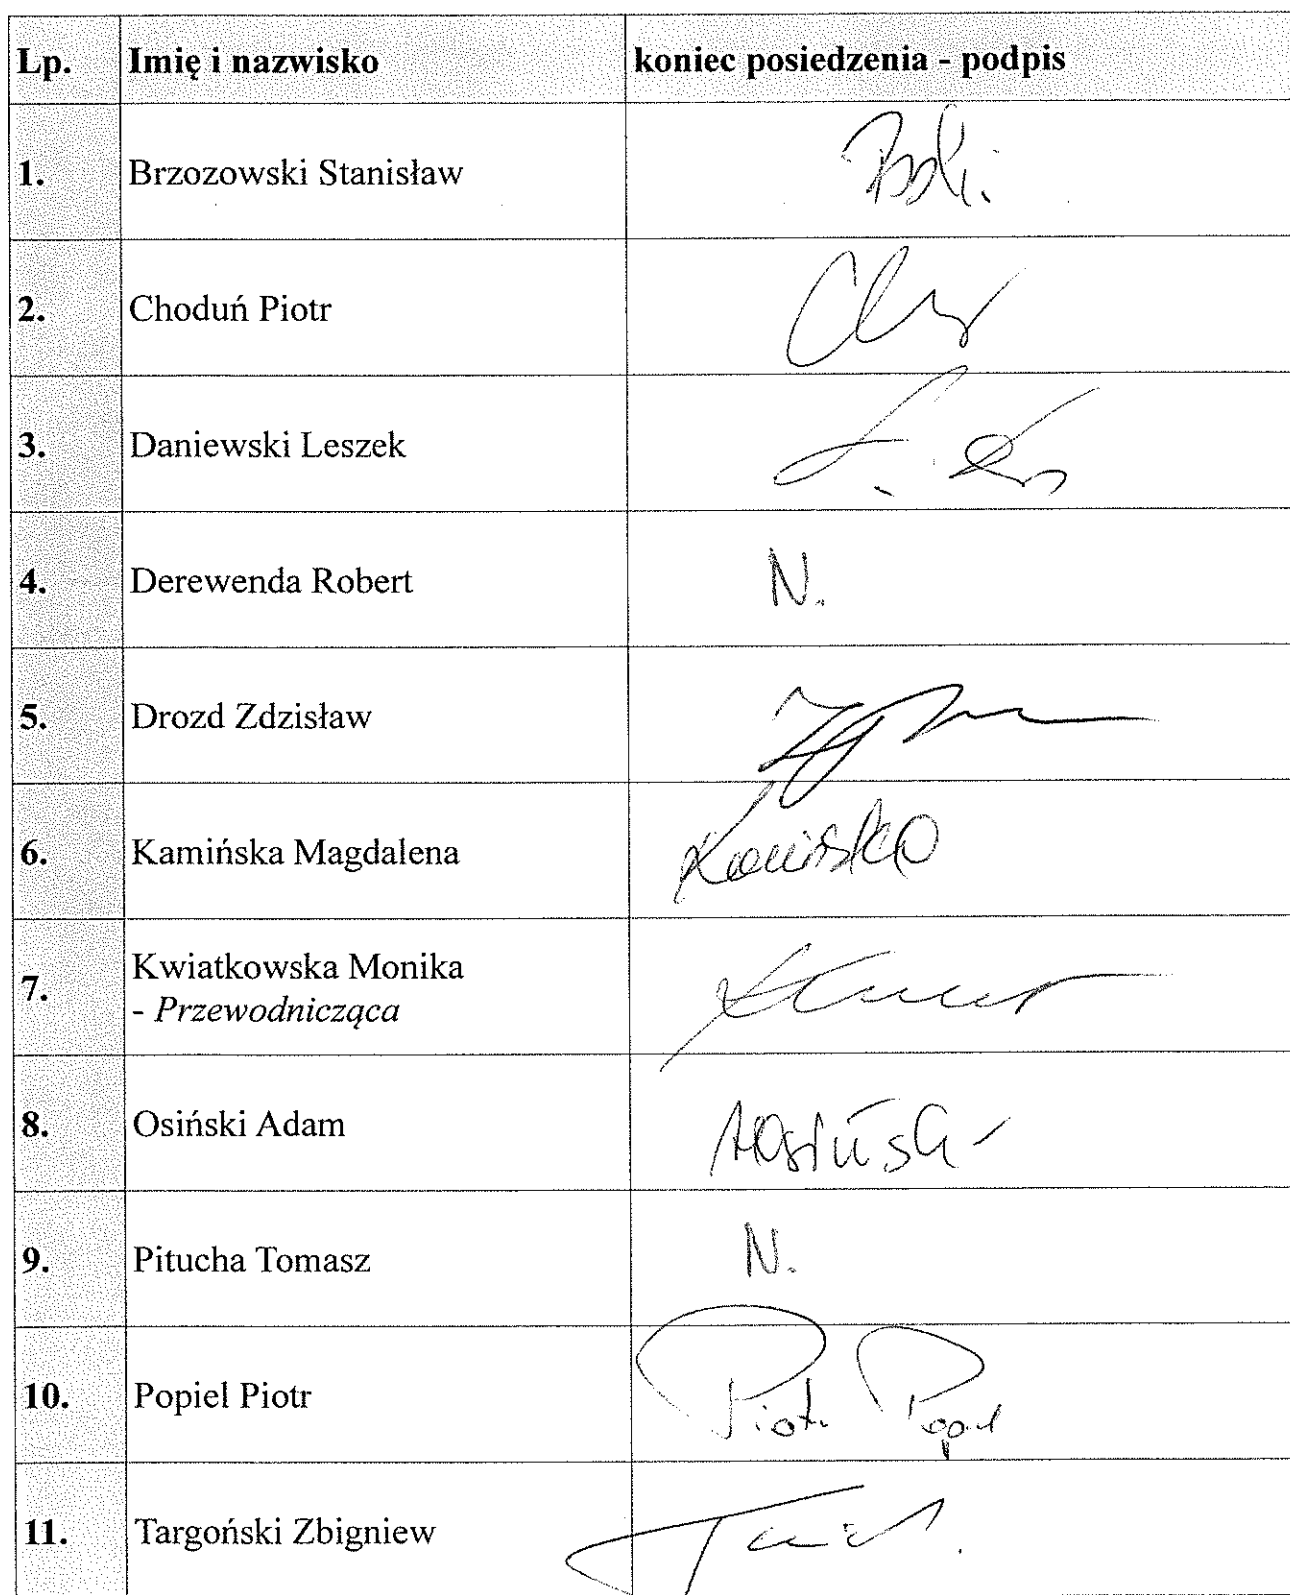 Lp. Imię i nazwisko koniec posiedzenia - podpis
1. Brzozowski Stanisław
2. Choduń Piotr
3. Daniewski Leszek
4. Derewenda Robert N.
5. Drozd Zdzisław
6. Kamińska Magdalena Kamińska
7. Kwiatkowska Monika
- Przewodnicząca
8. Osiński Adam AOsiński
9. Pitucha Tomasz N.
10. Popiel Piotr Piotr Popiel
11. Targoński Zbigniew